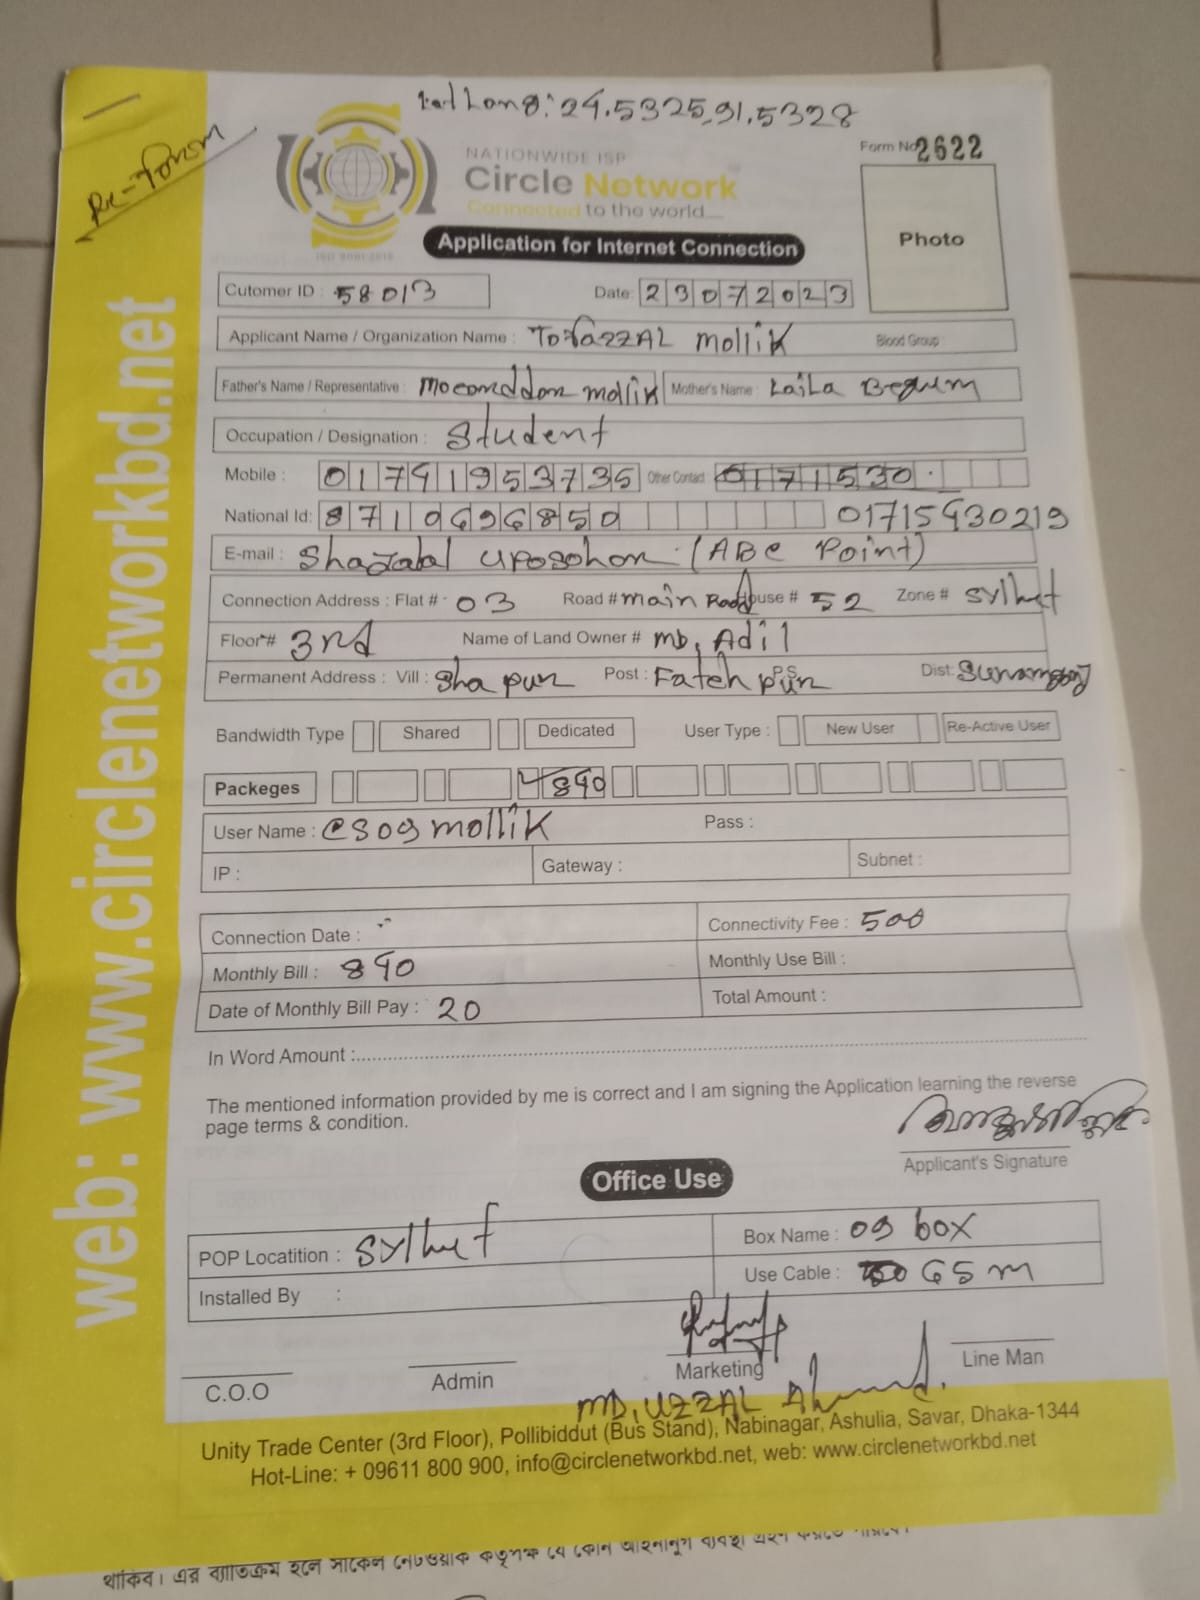 Lat Long: 24.5325,91.5328
Re-Form
NATIONWIDE ISP
Circle Network
Connected to the world....
ISO 9001:2015
Form No 2622
Photo
Application for Internet Connection
Cutomer ID : 58013 Date: 23072023
Applicant Name / Organization Name : Tofazzal Mollik Blood Group :
Father's Name / Representative : mollik Mother's Name : Laila Begum
Occupation / Designation : Student
Mobile : 01741953735 Other Contact : 0171530
National Id: 8710696850 01715430219
E-mail : Shazalal Uposohor (ABC Point)
Connection Address : Flat # 03 Road # main Road House # 52 Zone # Sylhet
Floor # 3rd Name of Land Owner # md, Adil
Permanent Address : Vill : Sha pur Post : Fateh pur P.S Dist: Sunamgonj
Bandwidth Type Shared Dedicated User Type : New User Re-Active User
Packeges 840
User Name : @sogmollik Pass :
IP : Gateway : Subnet :
Connection Date : Connectivity Fee : 500
Monthly Bill : 840 Monthly Use Bill :
Date of Monthly Bill Pay : 20 Total Amount :
In Word Amount :
The mentioned information provided by me is correct and I am signing the Application learning the reverse
page terms & condition.
Applicant's Signature
Office Use
POP Locatition : Sylhet Box Name : 09 box
Use Cable : 65 m
Installed By :
C.O.O Admin Marketing Line Man
MD, UZZAL Ahmed.
Unity Trade Center (3rd Floor), Pollibiddut (Bus Stand), Nabinagar, Ashulia, Savar, Dhaka-1344
Hot-Line: + 09611 800 900, info@circlenetworkbd.net, web: www.circlenetworkbd.net
web: www.circlenetworkbd.net
থাকিব। এর ব্যতিক্রম হলে সার্কেল নেটওয়ার্ক কতৃপক্ষ যে কোন আইনানুগ ব্যবস্থা গ্রহণ করতে পারবে।